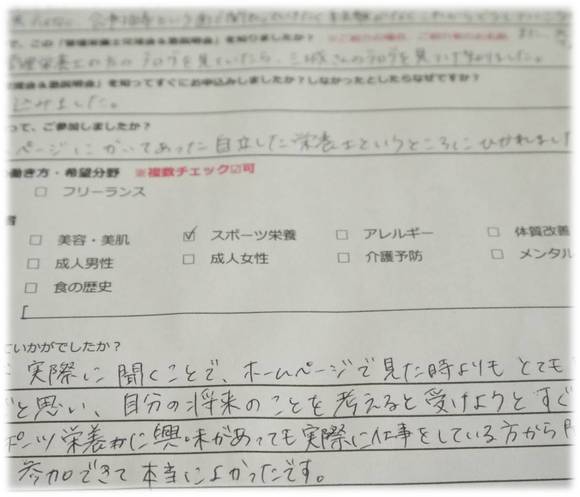 で、この「管理栄養士交流会&塾説明会」を知りましたか?
交流会&塾説明会」を知ってすぐにお申込みしましたか?しなかったとしたらなぜですか?
込みました。
って、ご参加しましたか?
ページにかいてあった自立した栄養士というところにひかれまし
働き方・希望分野 ※複数チェック☑可
□ フリーランス
□ 美容・美肌 ☑ スポーツ栄養 □ アレルギー □ 体質改善
□ 成人男性 □ 成人女性 □ 介護予防 □ メンタル
□ 食の歴史
[
ていかがでしたか?
実際に聞くことで、ホームページで見た時よりもとても
だと思い、自分の将来のことを考えると受けようとすぐ
ポーツ栄養分に興味があっても実際に仕事をしている方から
参加できて本当によかったです。